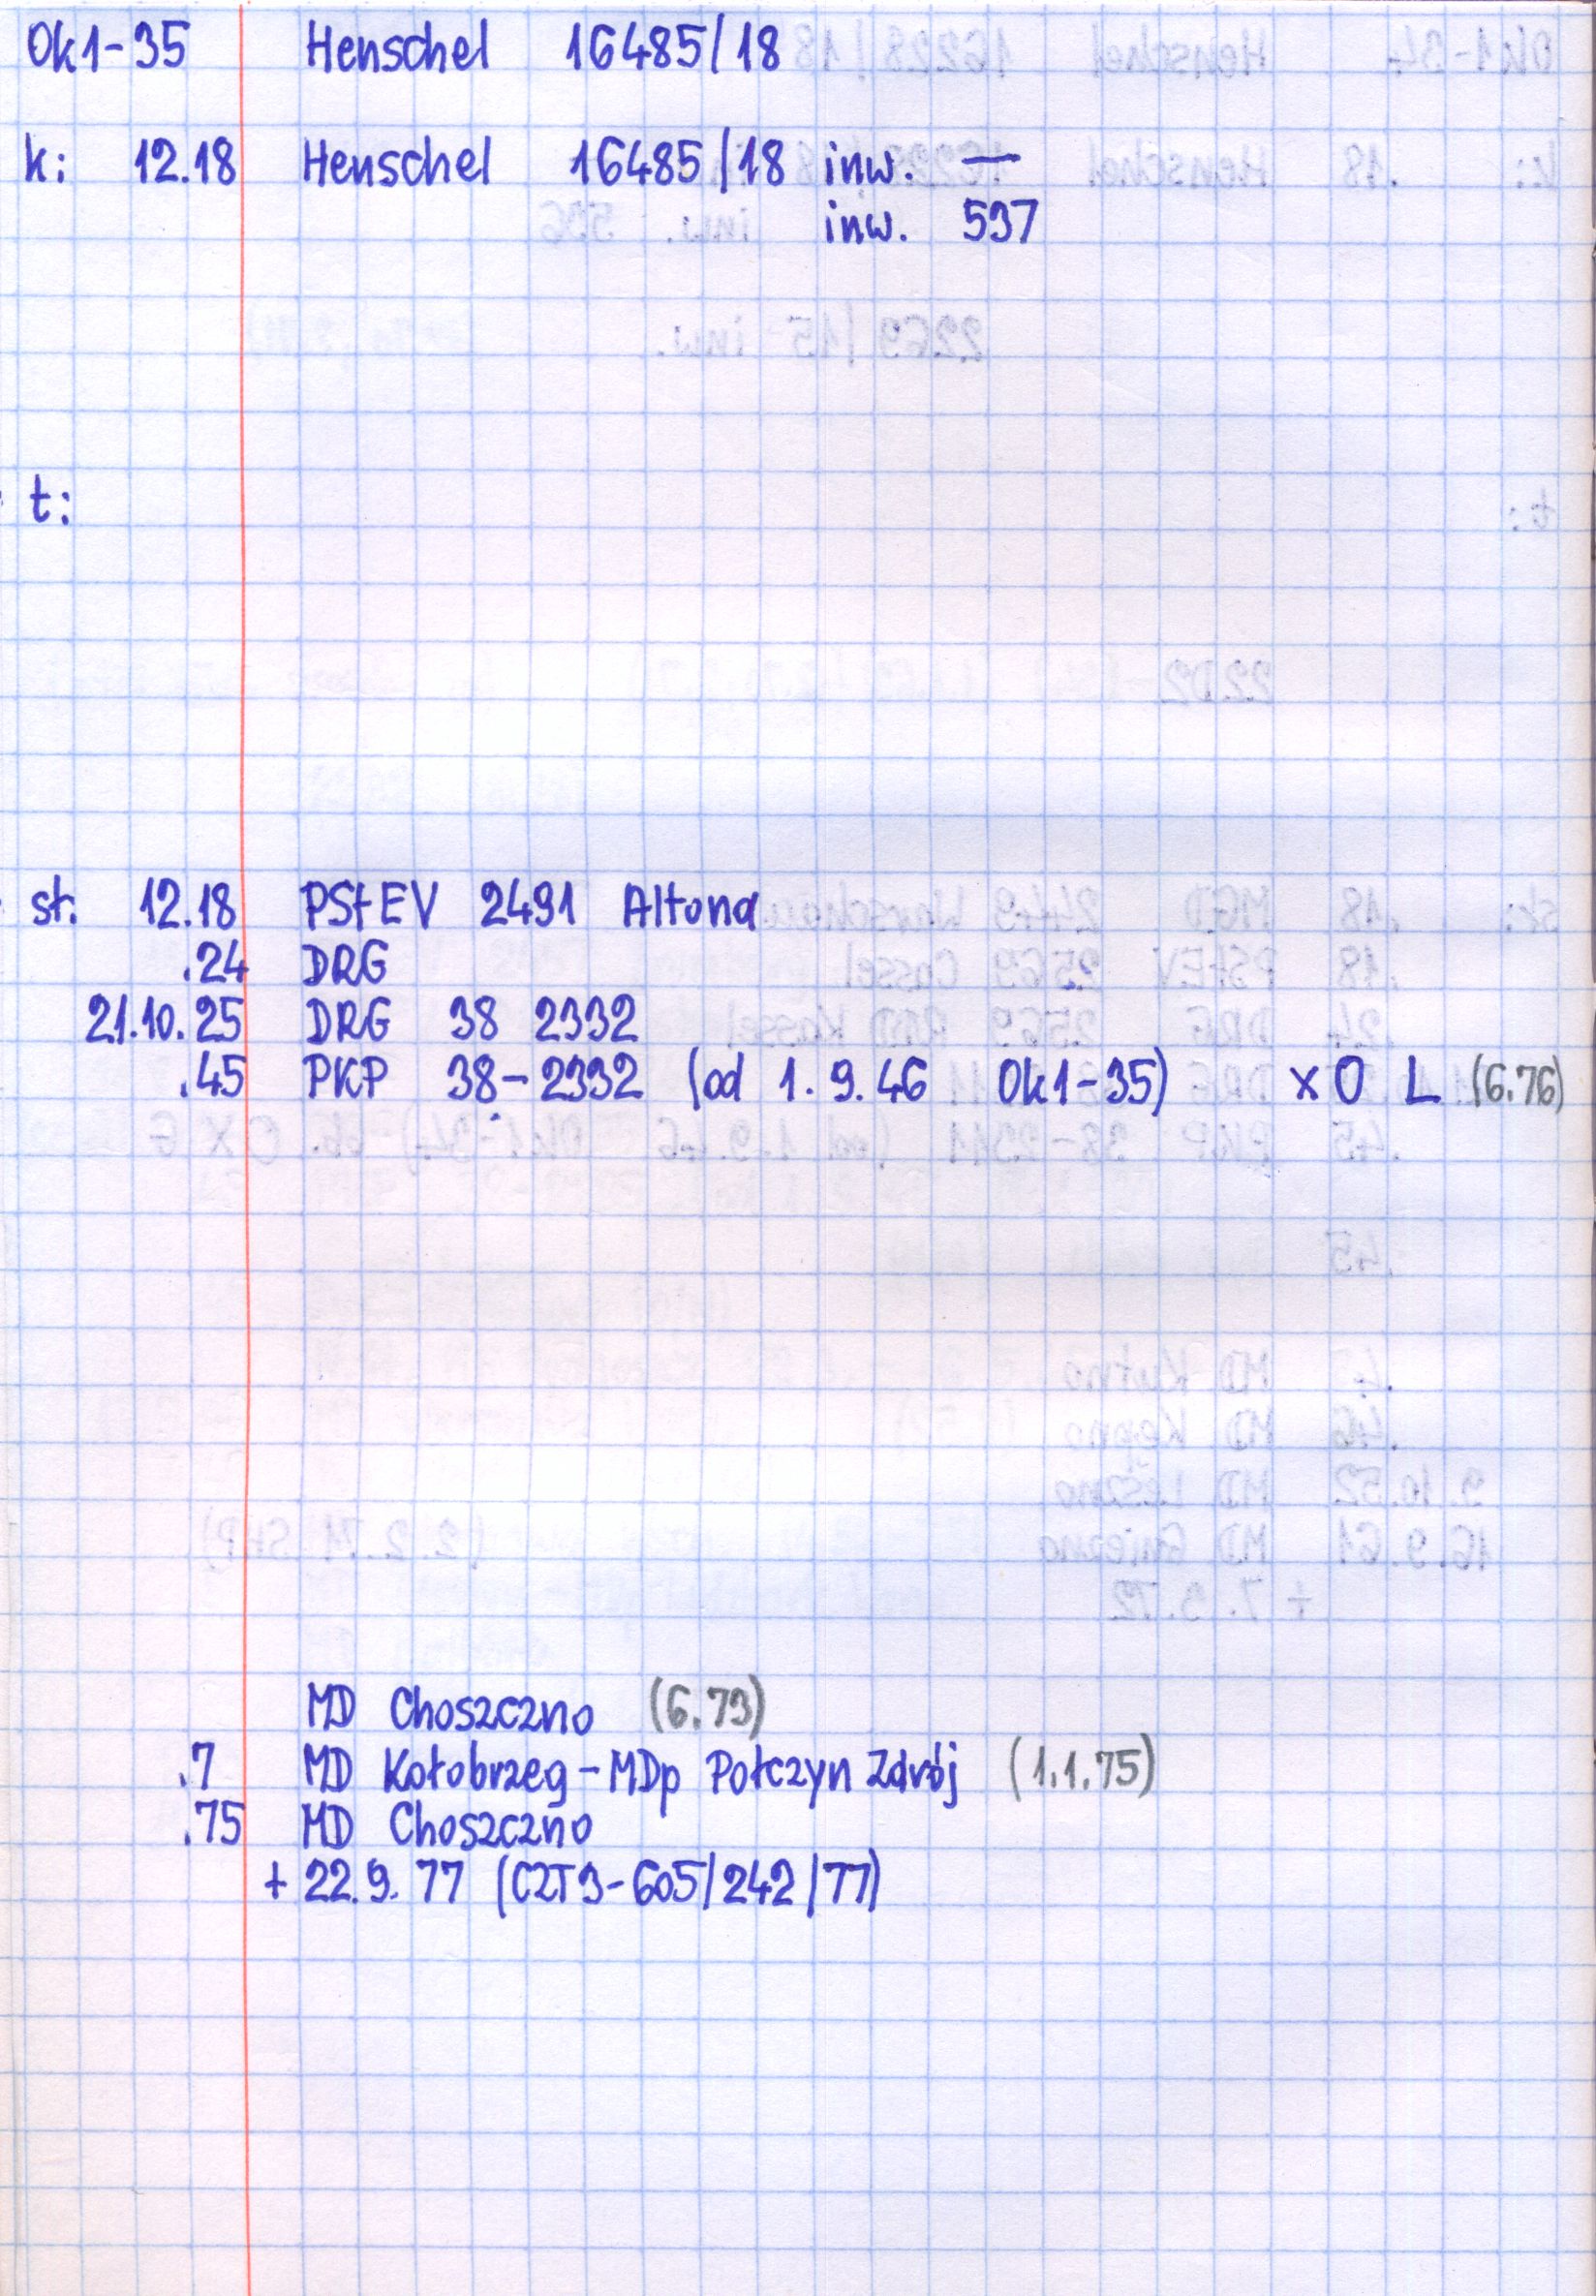 Ok1-35 Henschel 16485/18
k: 12.18 Henschel 16485/18 inw. —
inw. 537
t:
st. 12.18 PStEV 2491 Altona
.24 DRG
21.10.25 DRG 38 2332
.45 PKP 38-2332 (od 1.9.46 Ok1-35) x O L (6.76)
MD Choszczno (6.73)
.7 MD Kołobrzeg-MDp Połczyn Zdrój (1.1.75)
.75 MD Choszczno
+ 22.9.77 (CZT3-605/242/77)